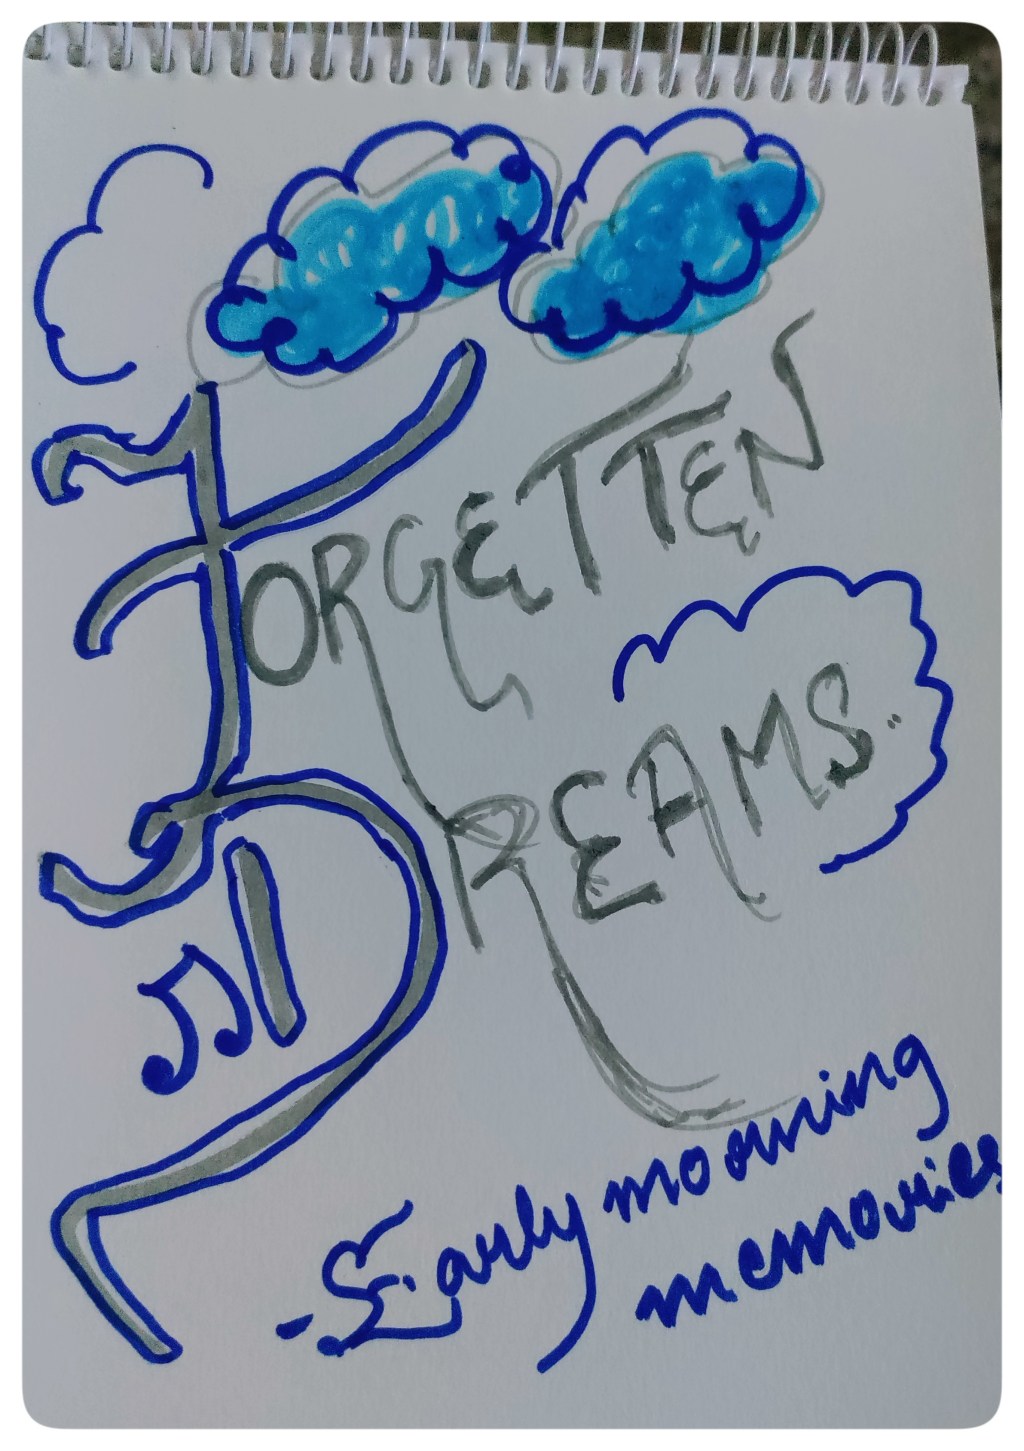 FORGETTEN
DREAMS..
- Early moorning
memories